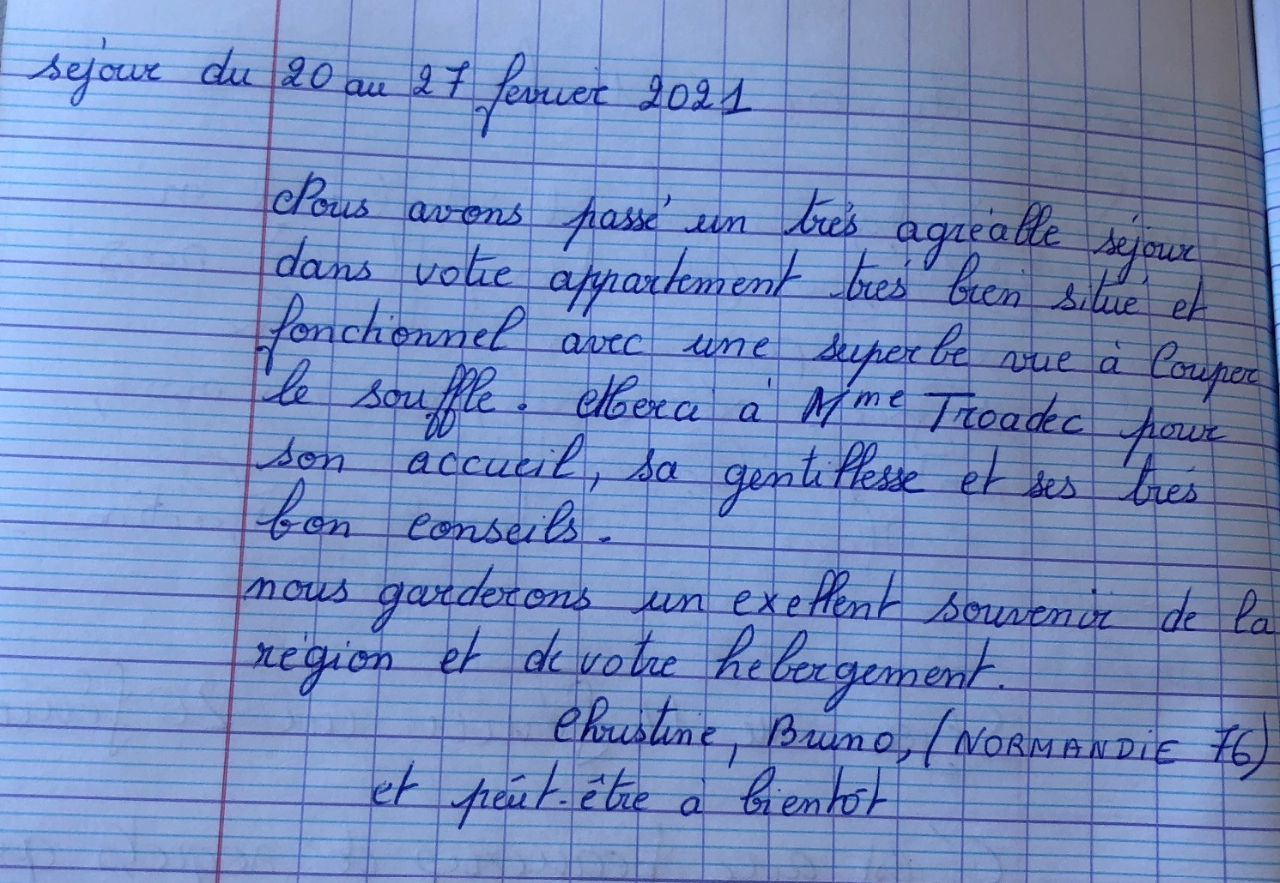 séjour du 20 au 27 fevrier 2021
Nous avons passé un très agréable séjour
dans votre appartement très bien situé et
fonctionnel avec une superbe vue à couper
le souffle. Merci à Mme Troadec pour
son accueil, sa gentillesse et ses très
bon conseils.
nous garderons un exellent souvenir de la
région et de votre hebergement.
Christine, Bruno, (NORMANDIE 76)
et peût-être à bientôt